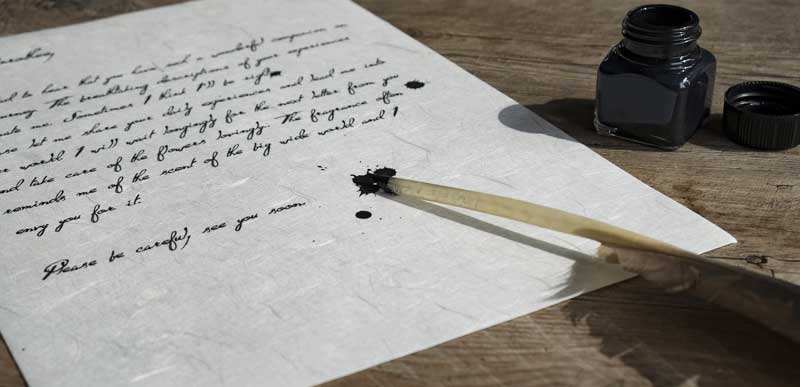 to hear that you have such a wonderful companion on
The breathtaking descriptions of your experiences
me. Sometimes I think I'll be right
let me share your daily experiences and send me into
world I will wait longingly for the next letter from you
and take care of the flowers lovingly. The fragrance often
reminds me of the scent of the big wide world and I
envy you for it.
Please be careful, see you soon.